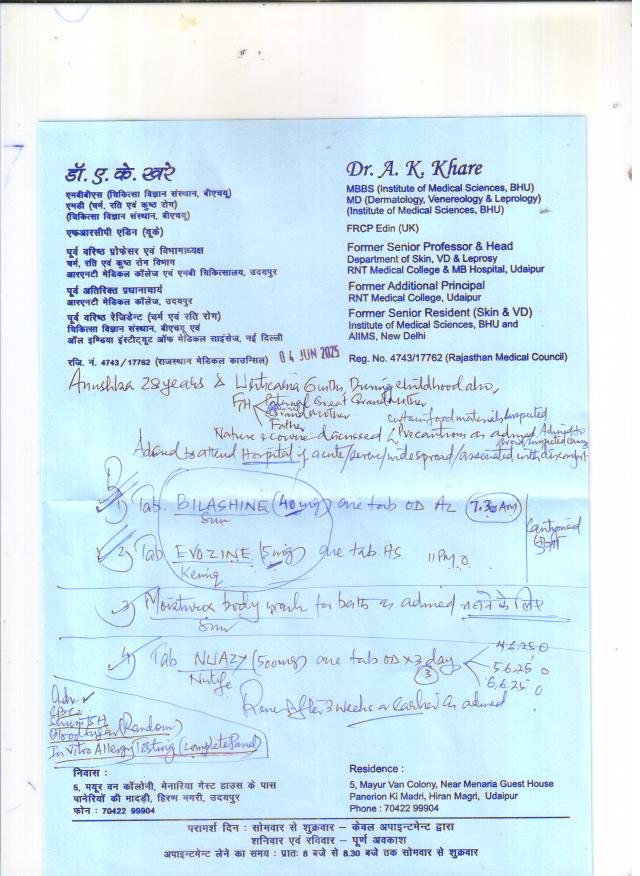 डॉ. ए. के. खरे
एमबीबीएस (चिकित्सा विज्ञान संस्थान, बीएचयू)
एमडी (चर्म, रति एवं कुष्ठ रोग)
(चिकित्सा विज्ञान संस्थान, बीएचयू)
एफआरसीपी एडिन (यूके)
पूर्व वरिष्ठ प्रोफेसर एवं विभागाध्यक्ष
चर्म, रति एवं कुष्ठ रोग विभाग
आरएनटी मेडिकल कॉलेज एवं एमबी चिकित्सालय, उदयपुर
पूर्व अतिरिक्त प्रधानाचार्य
आरएनटी मेडिकल कॉलेज, उदयपुर
पूर्व वरिष्ठ रेजिडेन्ट (चर्म एवं रति रोग)
चिकित्सा विज्ञान संस्थान, बीएचयू एवं
ऑल इण्डिया इंस्टीट्यूट ऑफ मेडिकल साइंसेज, नई दिल्ली
रजि. नं. 4743/17762 (राजस्थान मेडिकल काउन्सिल)
Dr. A. K. Khare
MBBS (Institute of Medical Sciences, BHU)
MD (Dermatology, Venereology & Leprology)
(Institute of Medical Sciences, BHU)
FRCP Edin (UK)
Former Senior Professor & Head
Department of Skin, VD & Leprosy
RNT Medical College & MB Hospital, Udaipur
Former Additional Principal
RNT Medical College, Udaipur
Former Senior Resident (Skin & VD)
Institute of Medical Sciences, BHU and
AIIMS, New Delhi
Reg. No. 4743/17762 (Rajasthan Medical Council)
04 JUN 2025
Anushka 28 years Urticaria During childhood also,
F/H Paternal Great Grandmother
Grandmother
Father
certain food materials suspected
Nature & course discussed Precautions as advised
Advised to attend Hospital if acute/severe/widespread/associated with discomfort
1) Tab. BILASHINE (40mg) one tab OD 7.30 AM
Sun
2) Tab EVOZINE (5mg) one tab HS 11 PM
3) Moisturex body wash for bath as advised नहाने के लिए
Sun
4) Tab NUAZY (500mg) one tab OD x 3 day
3
4.6.25
5.6.25
6.6.25
Renew after 3 weeks or earlier as advised
Adv
CBC
Serum TSH
Blood sugar (Random)
In Vitro Allergy Testing (Complete Panel)
निवास :
5, मयूर वन कॉलोनी, मेनारिया गेस्ट हाउस के पास
पानेरियों की मादड़ी, हिरण मगरी, उदयपुर
फोन : 70422 99904
Residence :
5, Mayur Van Colony, Near Menaria Guest House
Panerion Ki Madri, Hiran Magri, Udaipur
Phone : 70422 99904
परामर्श दिन : सोमवार से शुक्रवार – केवल अपाइन्टमेन्ट द्वारा
शनिवार एवं रविवार – पूर्ण अवकाश
अपाइन्टमेन्ट लेने का समय : प्रातः 8 बजे से 8.30 बजे तक सोमवार से शुक्रवार